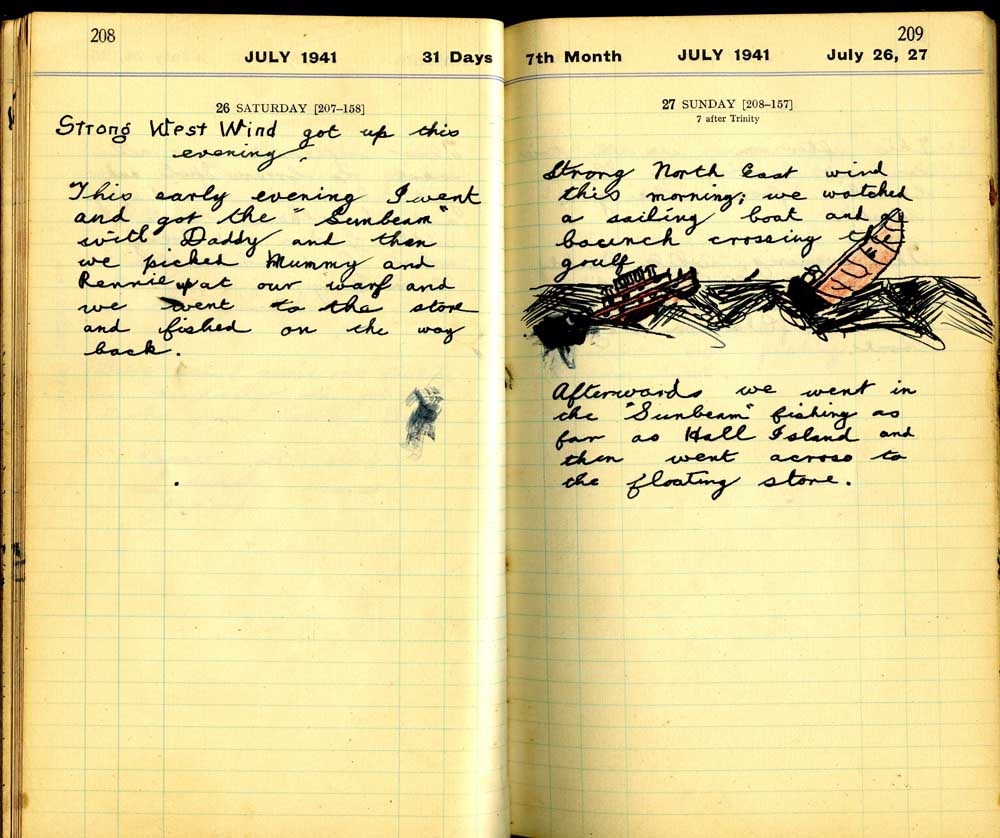 208
JULY 1941 31 Days
26 SATURDAY [207–158]
Strong West Wind got up this
evening.
This early evening I went
and got the "Sunbeam"
with Daddy and then
we picked Mummy and
Rennie up at our warf and
we went to the store
and fished on the way
back.
209
7th Month JULY 1941 July 26, 27
27 SUNDAY [208–157]
7 after Trinity
Strong North East wind
this morning; we watched
a sailing boat and a
baunch crossing the
goulf
Afterwards we went in
the "Sunbeam" fishing as
far as Hall Island and
then went across to
the floating store.